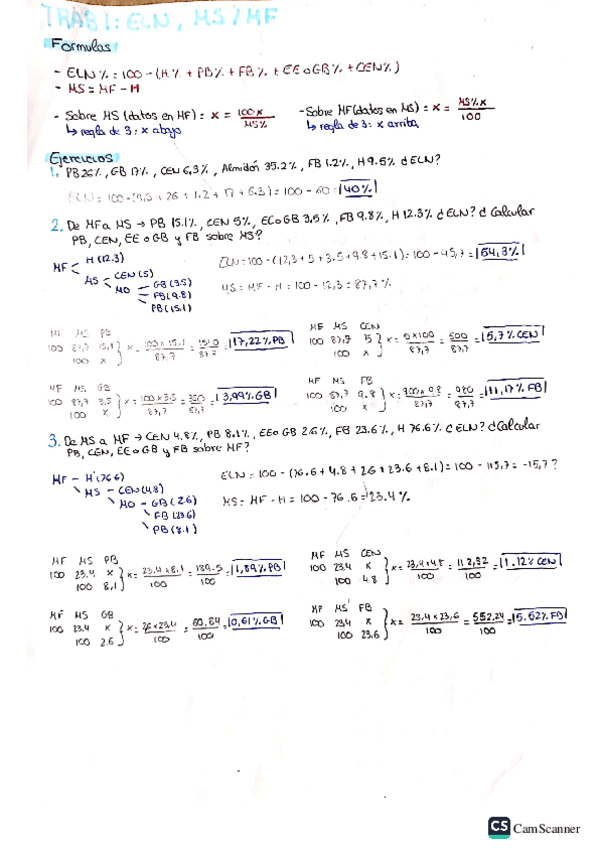 TRAB 1: ELN, MS/MF
Formulas
- ELN % = 100 - (H % + PB % + FB % + EE o GB % + CEN %)
- MS = MF - H
- Sobre MS (datos en MF) = x = 100x / MS%
↳ regla de 3: x abajo
- Sobre MF (datos en MS) = x = MS% x / 100
↳ regla de 3: x arriba
Ejercicios
1. PB 26%, GB 17%, CEN 6,3%, Almidón 35.2%, FB 1.2%, H 9.5% ¿ELN?
ELN = 100 - (9,5 + 26 + 1.2 + 17 + 6.3) = 100 - 60 = 40%
2. De MF a MS → PB 15.1%, CEN 5%, EE o GB 3.5%, FB 9.8%, H 12.3% ¿ELN? ¿Calcular
PB, CEN, EE o GB y FB sobre MS?
MF
H (12.3)
MS
CEN (5)
MO
GB (3.5)
FB (9.8)
PB (15.1)
ELN = 100 - (12,3 + 5 + 3.5 + 9.8 + 15.1) = 100 - 45,7 = 54,3%
MS = MF - H = 100 - 12,3 = 87,7 %
MF MS PB
100 87,7 15,1
100 x
x = 100 x 15,1 / 87,7 = 1510 / 87.7 = 17,22% PB
MF MS CEN
100 87,7 5
100 x
x = 5 x 100 / 87,7 = 500 / 87,7 = 5,7% CEN
MF MS GB
100 87,7 3,5
100 x
x = 100 x 3.5 / 87,7 = 350 / 87,7 = 3,99% GB
MF MS FB
100 87,7 9.8
100 x
x = 100 x 9.8 / 87,7 = 980 / 87.7 = 11,17% FB
3. De MS a MF → CEN 4.8%, PB 8.1%, EE o GB 2.6%, FB 23.6%, H 76.6% ¿ELN? ¿Calcular
PB, CEN, EE o GB y FB sobre MF?
MF - H (76.6)
MS - CEN (4.8)
MO - GB (2.6)
FB (23.6)
PB (8.1)
ELN = 100 - (76.6 + 4.8 + 2.6 + 23.6 + 8.1) = 100 - 115,7 = -15,7 ?
MS = MF - H = 100 - 76.6 = 23.4 %
MF MS PB
100 23.4 x
100 8,1
x = 23,4 x 8,1 / 100 = 189.5 / 100 = 1,89% PB
MF MS CEN
100 23.4 x
100 4.8
x = 23,4 x 4.8 / 100 = 112,32 / 100 = 1.12% CEN
MF MS GB
100 23.4 x
100 2.6
x = 2.6 x 23,4 / 100 = 60.84 / 100 = 0,61% GB
MF MS FB
100 23,4 x
100 23.6
x = 23,4 x 23,6 / 100 = 552,24 / 100 = 5.52% FB
CS CamScanner